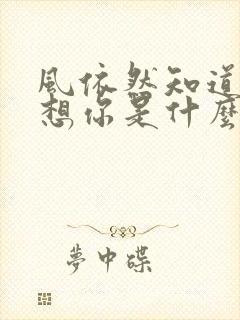 風依然知道
想你是什麼
夢中碟